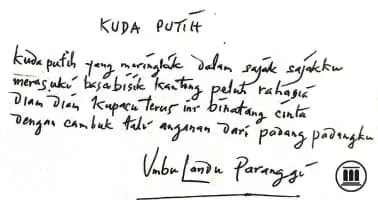 KUDA PUTIH
kuda putih yang meringkik dalam sajak sajakku
merasuki basabisik kantong pelut rahasia
diam diam kupacu terus ini binatang cinta
dengan cambuk tali anganan dari padang padangku
Umbu Landu Paranggi